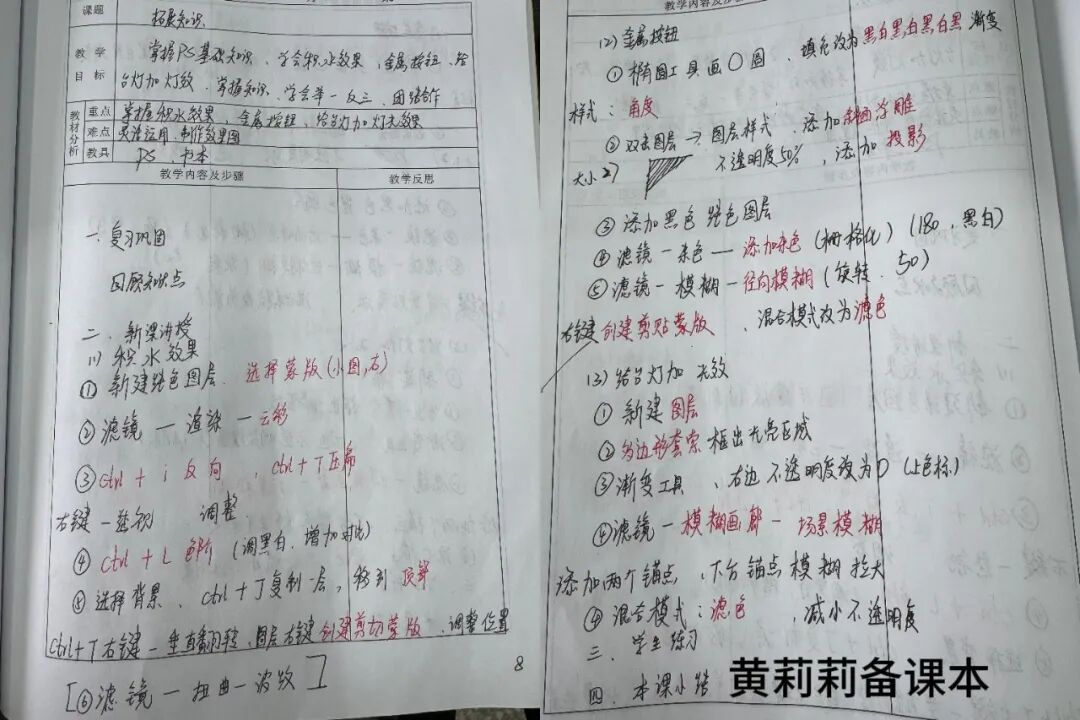 课题 拓展知识
教学目标 掌握PS基础知识、学会积水效果、金属按钮、给
台灯加灯效、掌握知识、学会举一反三、团结合作
教材分析 重点 掌握积水效果、金属按钮、给台灯加灯光效果
难点 灵活运用、制作效果图
教具 PS、书本
教学内容及步骤 教学反思
一、复习巩固
回顾知识点
二、新课讲授
(1) 积水效果
① 新建纯色图层、选择蒙版(小图,右)
② 滤镜 — 渲染 — 云彩
③ ctrl + i 反向、ctrl + T 压扁
右键 — 透视 调整
④ ctrl + L 色阶 (调黑白、增加对比)
⑤ 选择背景、ctrl + J 复制一层,移到顶层
ctrl+T 右键 — 垂直翻转、图层右键创建剪切蒙版、调整位置
[⑥ 滤镜 — 扭曲 — 波纹]
8
教学内容及步骤
(2) 金属按钮
① 椭圆工具画〇圆、填充改为黑白黑白黑白黑 渐变
样式:角度
② 双击图层 → 图层样式、添加斜面浮雕
大小2 不透明度50%、添加投影
③ 添加黑色纯色图层
④ 滤镜 — 杂色 — 添加杂色 (栅格化) (180,黑白)
⑤ 滤镜 — 模糊 — 径向模糊 (旋转、50)
右键创建剪贴蒙版、混合模式改为滤色
(3) 给台灯加光效
① 新建图层
② 多边形套索框出光亮区域
③ 渐变工具、右边不透明度设为0 (上色标)
④ 滤镜 — 模糊画廊 — 场景模糊
添加两个锚点、下方锚点模糊拉大
④ 混合模式:滤色、减小不透明度
三、学生练习
四、本课小结
黄莉莉备课本